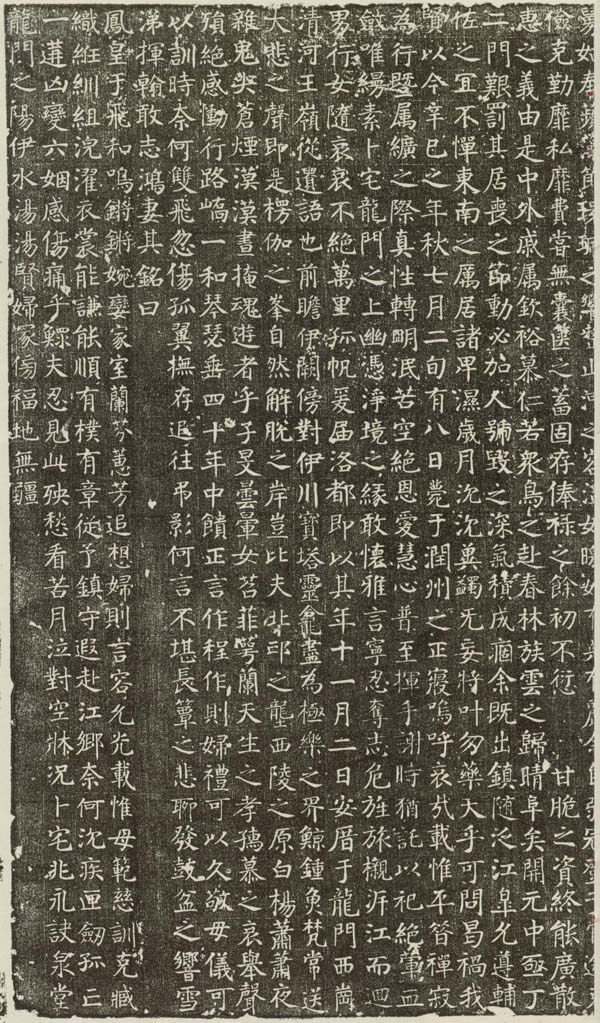 如奉蘋藻節環之響整山河之容
儉克勤靡私靡費嘗無囊篋之蓄固存俸祿之餘初不愆　甘脆之資終能廣散
惠之義由是中外戚属欽裕慕仁若衆鳥之赴春林族雲之歸晴阜矣開元中亟丁
二門艱罰其居喪之節動必加人號毀之深氣積成痼余既出鎮隨泛江皐允遵輔
佐之冝不憚東南之厲居諸卑濕歲月沈沈冀蠲无妄將叶勿藥大乎可問曷禍我
賢以今辛巳之年秋七月二旬有八日薨于潤州之正寢嗚呼哀哉載惟平昔禪寂
為行曁属纊之際真性轉明泯苦空絕恩愛慧心普至揮手謝時猶託以祀絕葷血
斂唯縵素卜宅龍門之上幽憑淨境之緣敢懷雅言寧忍奪志危旌旅櫬泝江而迴
男行女隨哀哀不絕萬里孤帆爰届洛都即以其年十一月二日安厝于龍門西崗
清河王嶺從遺語也前瞻伊闕傍對伊川寶塔靈龕盡為極樂之界鯨鍾魚梵常送
大悲之聲即是楞伽之峯自然解脫之岸豈比夫北邙之壟西陵之原白楊蕭蕭夜
雜鬼哭蒼煙漠漠晝掩魂遊者乎子旻曇暈女苕菲萼蘭天生之孝孺慕之哀舉聲
殞絕感慟行路嶠一和琴瑟垂四十年中饋正言作程作則婦禮可以久敬母儀可
以訓時奈何雙飛忽傷孤翼撫存追往弔影何言不堪長簟之悲聊發鼓盆之響雪
涕揮翰敢志鴻妻其銘曰
鳳皇于飛和鳴鏘鏘婉孌家室蘭芬蕙芳追想婦則言容允光載惟母範慈訓克臧
織紝紃組浣濯衣裳能謙能順有樸有章從予鎮守遐赴江鄉奈何沈疾匣劒孤亡
一遘凶變六姻感傷痛乎鰥夫忍見此殃愁看苦月泣對空牀況卜宅兆永訣泉堂
龍門之陽伊水湯湯賢婦冢傷福地無疆